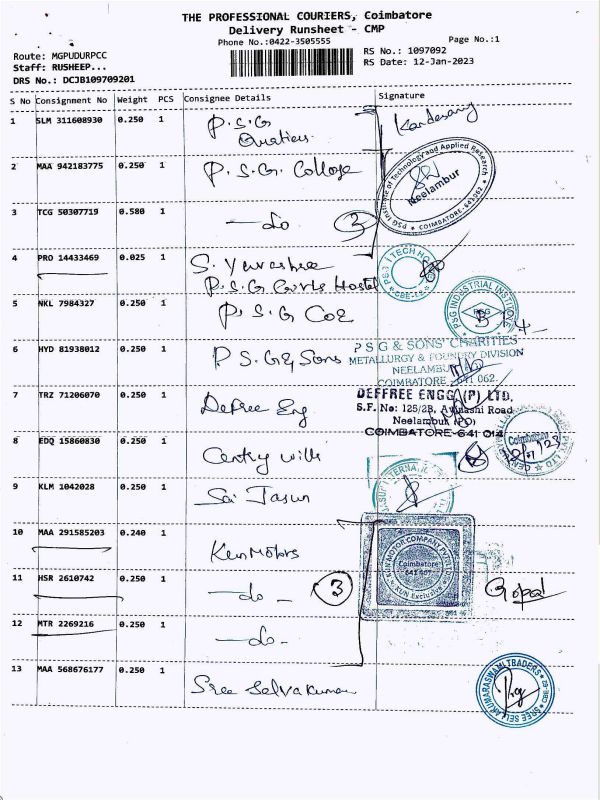 THE PROFESSIONAL COURIERS, Coimbatore
Delivery Runsheet - CMP
Phone No.:0422-3505555
Page No.:1
Route: MGPUDURPCC
Staff: RUSHEEP...
DRS No.: DCJB109709201
RS No.: 1097092
RS Date: 12-Jan-2023
S No Consignment No Weight PCS Consignee Details Signature
1 SLM 311608930 0.250 1 P.S.G
2 MAA 942183775 0.250 1 P.S.G. College
PSG Institute of Technology and Applied Research
Neelambur
COIMBATORE-641 062.
3 TCG 50307719 0.580 1 —do 3
4 PRO 14433469 0.025 1 S.
P.S.G Girls Hostel
5 NKL 7984327 0.250 1 P.S.G COE
PSG INDUSTRIAL INSTITUTE
PSG
6 HYD 81938012 0.250 1 P S.G & Sons
P S G & SONS' CHARITIES
METALLURGY & FOUNDRY DIVISION
NEELAMBUR
COIMBATORE 641 062.
7 TRZ 71206070 0.250 1 Defree Eng
DEFFREE ENGG (P) LTD.
S.F. No: 125/2B, Avinashi Road
Neelambur (PO)
COIMBATORE-641 014
8 EDQ 15860830 0.250 1
Coimbatore
9 KLM 1042028 0.250 1 Sai Jasun
10 MAA 291585203 0.240 1 Kun Motors
KUN MOTOR COMPANY PVT LTD
Coimbatore
KUN Exclusive
11 HSR 2610742 0.250 1 —do— 3 Gopal
12 MTR 2269216 0.250 1 —do-
13 MAA 568676177 0.250 1 Sree Selvakumar
SREE SELLAKUMARASWAMI TRADERS